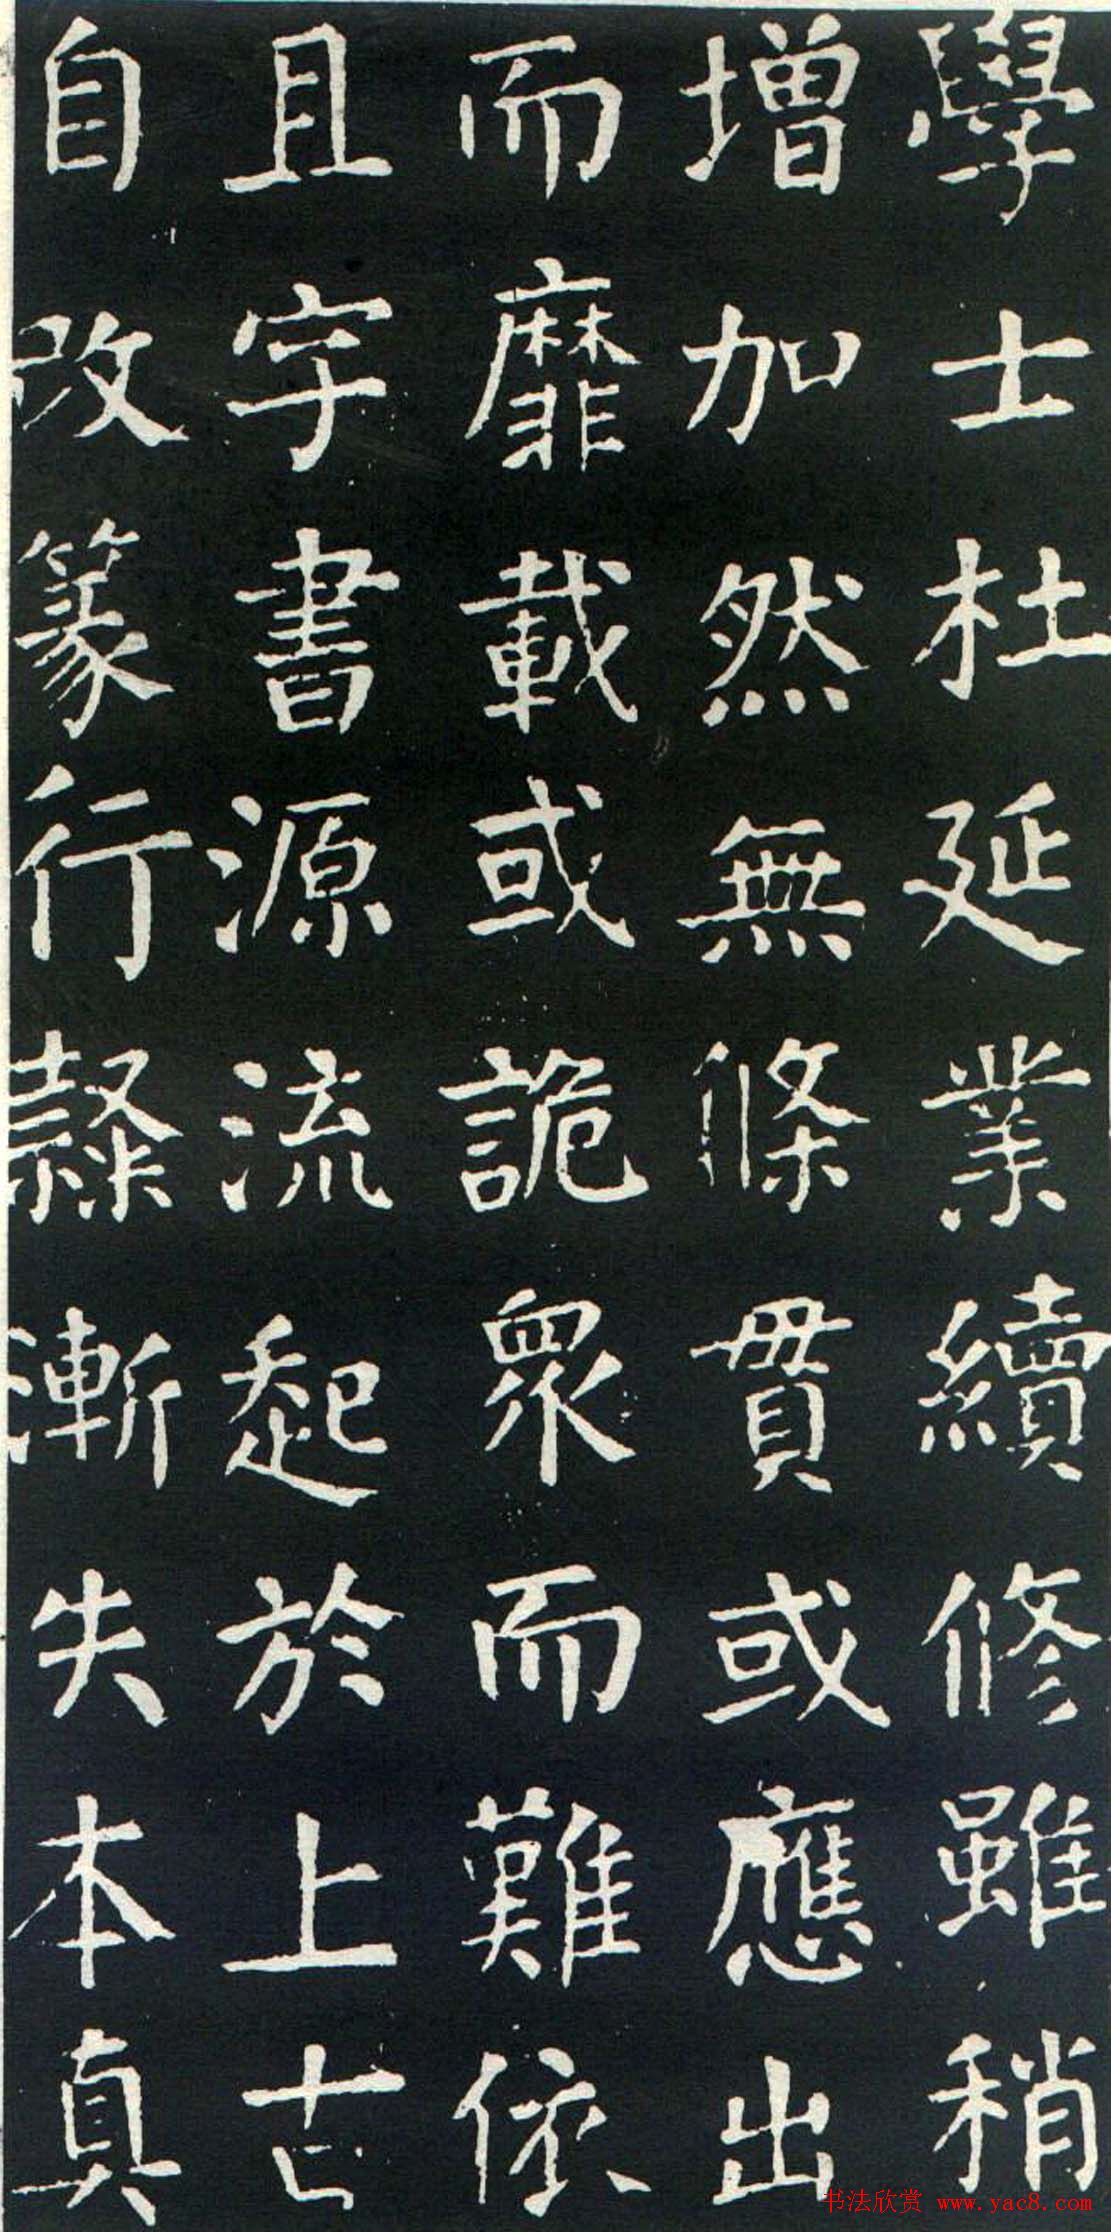 學士杜延業續修雖稍
增加然無條貫或應出
而靡載或詭眾而難依
且字書源流起於上古
自改篆行隸漸失本真
书法欣赏 www.yac8.com